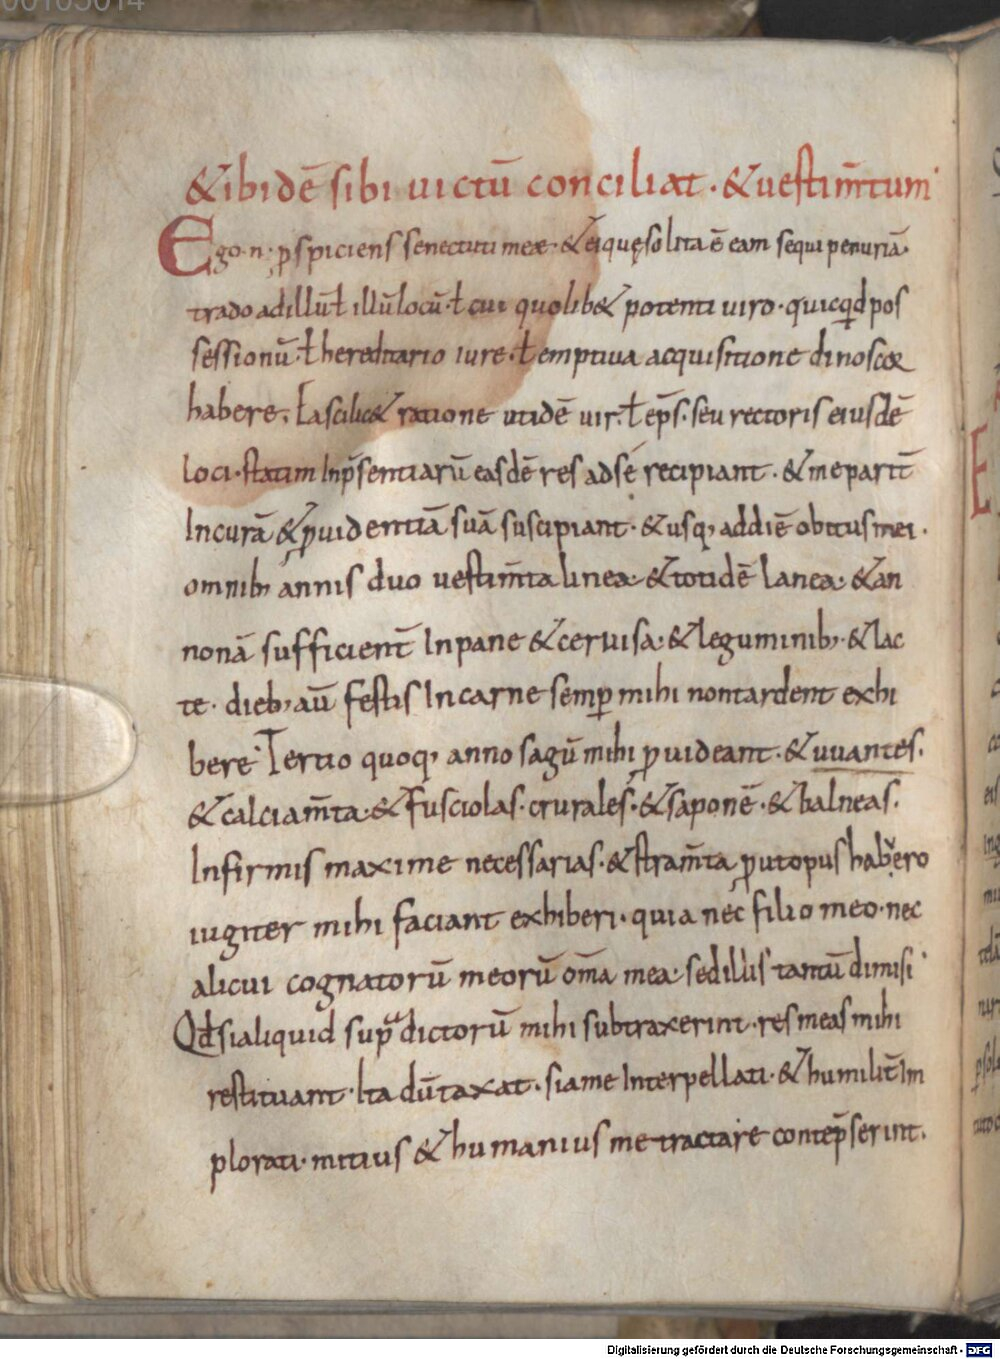 00105014
&ibidē sibi uictū conciliat · &uestim̄tum
Ego · n · ꝑspiciens senectuti meæ · &eiquęsolita ē eam sequi penuriā
trado ad illūƚ illū locū · ƚ cui quolib& potenti uiro · quicqd pos
sessionū · ƚ hereditario iure · ƚ emptiua acquisitione dinoscor
habere · Ea scilic& ratione ut idē uir · ƚ ep̄s · seu rectoris eiusdē
loci · statim Inp̄sentiarū easdē res ad sé recipiant · & me paritēr
Incurā &ꝓuidentiā suā suscipiant · & usq; ad diē obitus mei ·
omnib; annis duo uestim̄ta linea · & totidē lanea · & an
nonā sufficient̄ Inpane & ceruisa · & leguminib; · & lac
te · dieb; aū festis Incarne semꝑ mihi non tardent exhi
bere · Tertio quoq; anno sagū mihi ꝓuideant · & uuantes ·
& calciam̄ta · & fusciolas · crurales · & saponē · & balneas ·
Infirmis maxime necessarias · & stram̄ta ꝓut opus habuero
iugiter mihi faciant exhiberi · quia nec filio meo · nec
alicui cognatorū meorū om̄a mea · sed illis tantū dimisi
Qd si aliquid supradictorū mihi subtraxerint · res meas mihi
restituant · Ita dūtaxat · si a me Interpellati · & humilit̄ Im
plorati · mitius & humanius me tractare contēp̄serint ·
Digitalisierung gefördert durch die Deutsche Forschungsgemeinschaft - DFG